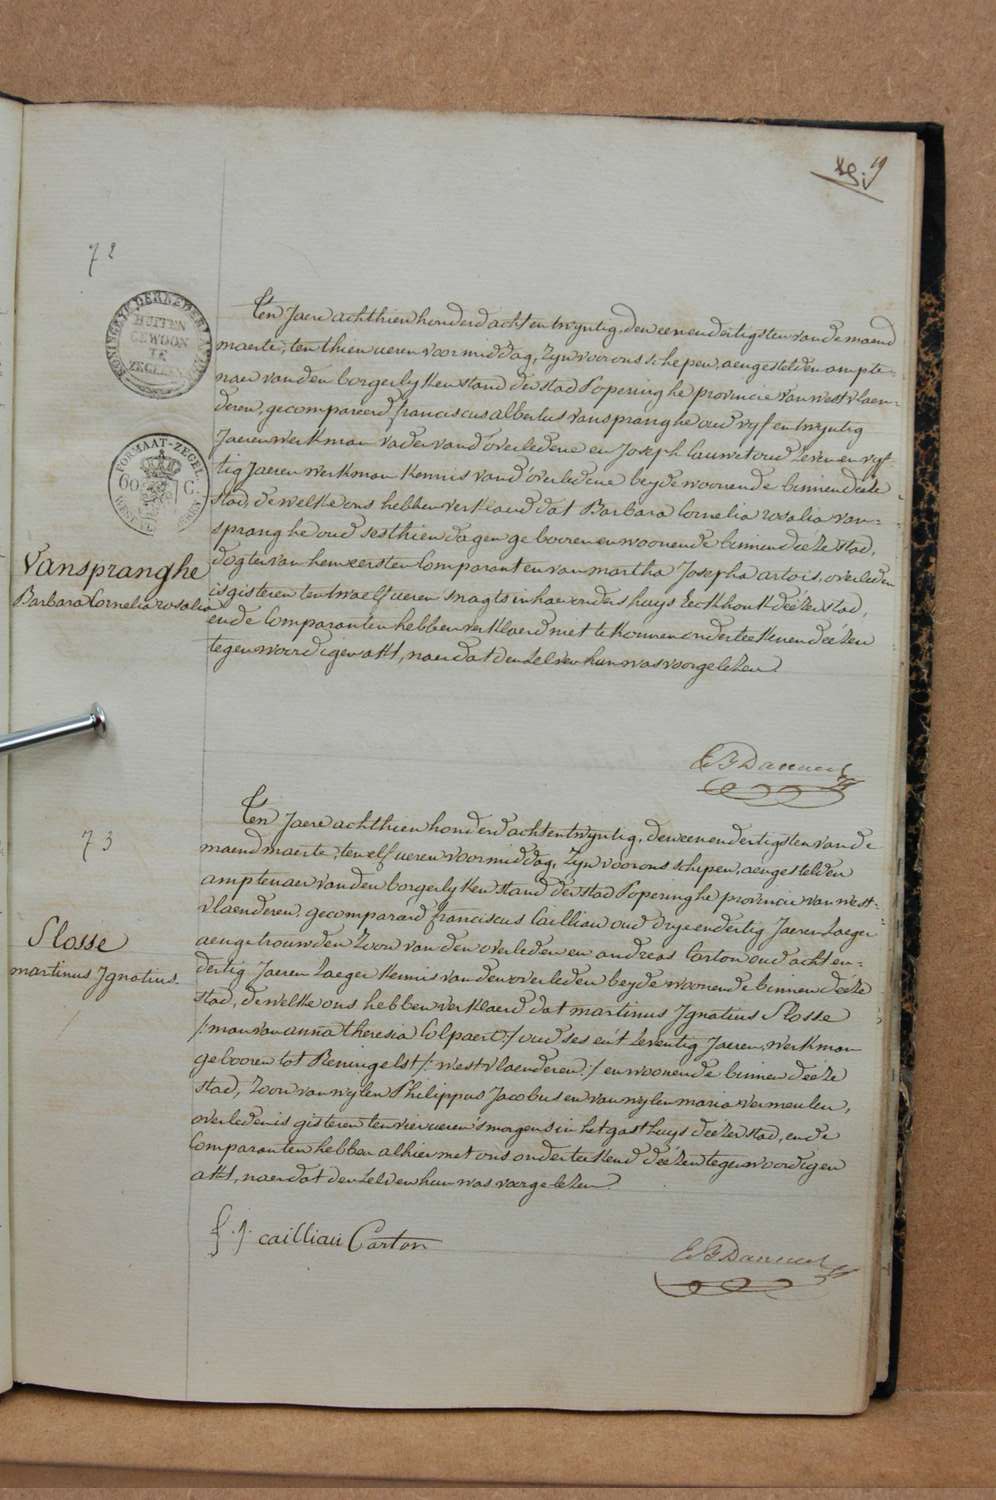 19
72
KONINGRYK DER NEDERLANDEN
BUITEN
GEWOON
TE
ZEGELEN
FORMAAT-ZEGEL
60 C.
Vanspranghe
Barbara Cornelia rosalia
Ten Jaere achthien honderd acht en twyntig, den eenendertigsten van de maend
maerte, ten thien ueren voormiddag, zyn voor ons schepen, aengestelden ampte-
naer van den borgerlyken stand der stad Poperinghe provincie van westvlaen-
deren, gecompareerd franciscus albertus vanspranghe oud vyf en twyntig
Jaeren werkman vader vand'overledene en Joseph Cauwet oud zeven en vyf-
tig Jaeren werkman kennis vand'overledene beyde woonende binnen deeze
stad, dewelke ons hebben verklaerd dat Barbara Cornelia rosalia van-
spranghe oud sesthien dagen gebooren en woonende binnen deéze stad,
dogter van hem eersten Comparant en van martha Josepha artois, overleden
is gisteren ten twaelf ueren snagts in haer ouders huys Eeckhoutk deézer stad,
ende Comparanten hebben verklaerd niet te konnen onderteekenen deézen
tegenwoordigen akt, naer dat den zelven hun was voorgelezen.
73
Slosse
martinus Jgnatius.
Ten Jaere achthien honderd acht en twyntig, den eenendertigsten van de
maend maerte, ten elf ueren voormiddag, zyn voor ons schepen, aengestelden
amptenaer van den borgerlyken stand der stad Poperinghe provincie van west-
vlaenderen, gecompareerd franciscus Cailliau oud drye en dertig Jaeren Zaeger
aengetrouwden Zoon van den overleden en andreas Carton oud acht en-
dertig Jaeren Zaeger kennis van den overleden beyde woonende binnen deéze
stad, dewelke ons hebben verklaerd dat martinus Jgnatius Slosse
/: man van anna theresia Colpaert :/ oud ses en t'zeventig Jaeren, werkman
gebooren tot Reningelst /: westvlaenderen :/ en woonende binnen deéze
stad, Zoon van wylen Philippus Jacobus en van wylen maria vermeulen,
overleden is gisteren ten vier ueren s'morgens in het gasthuys deézer stad, ende
Comparanten hebben alhier met ons onderteekend deézen tegenwoordigen
akt, naer dat den zelven hun was voorgelezen.
f. j. cailliau Carton